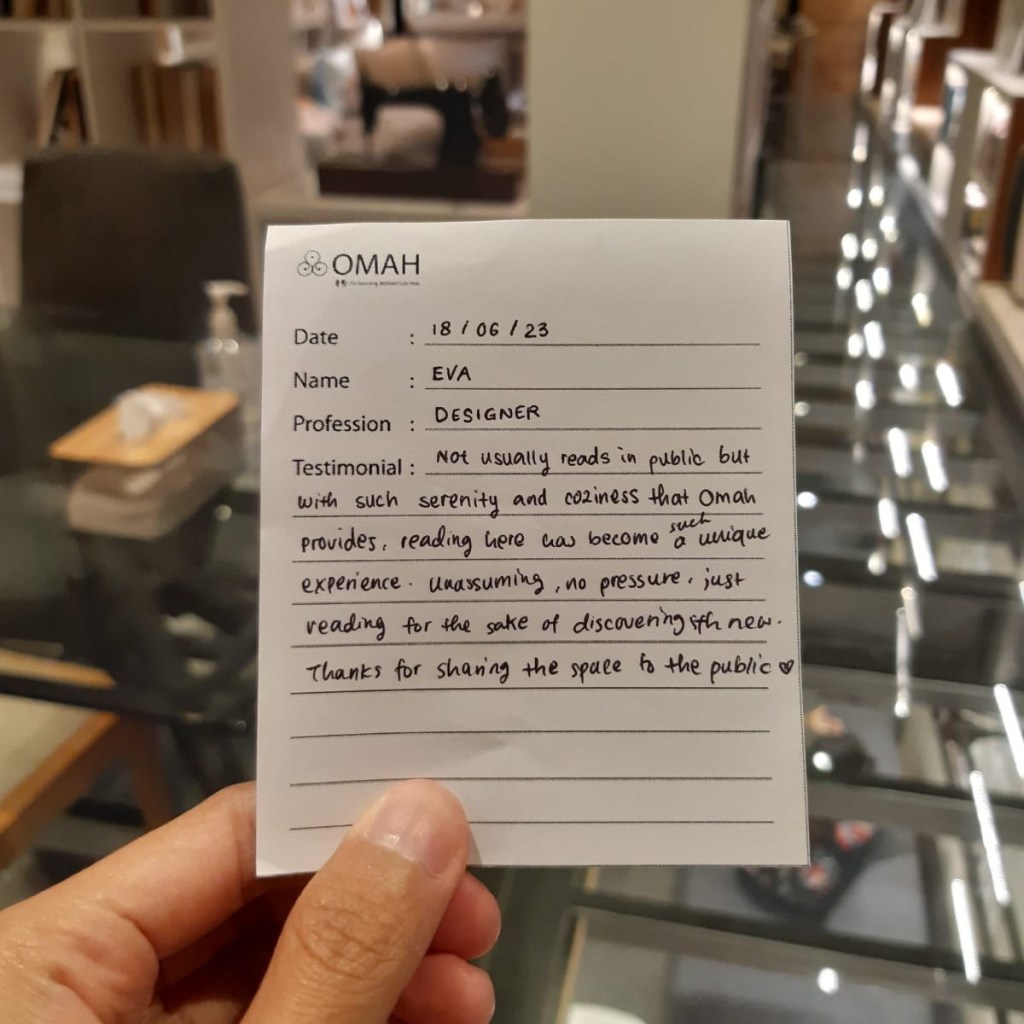 OMAH
Date : 18 / 06 / 23
Name : EVA
Profession : DESIGNER
Testimonial : Not usually reads in public but
with such serenity and coziness that Omah
provides, reading here has become such a unique
experience. Unassuming, no pressure, just
reading for the sake of discovering sth new.
Thanks for sharing the space to the public ♥